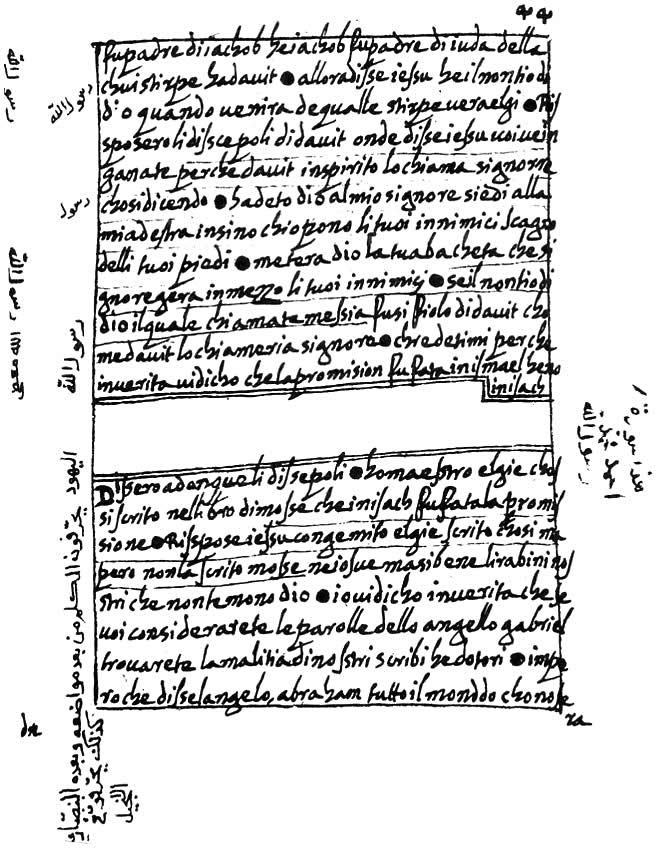 fu padre di iachob he iachob fu padre di iuda della
chui stirpe he dauit ● allora disse iessu he il nontio di
d'o quando uenira de qualle stirpe uera elgi ● Ris
sposero li disscepoli di dauit onde disse iessu uoi ue in
ganate perche dauit in spirito lo chiama signorre
chosi dicendo ● ha deto dio al mio signore siedi alla
mia destra insino ch io pono li tuoi innimici scagno
delli tuoi piedi ● metera dio la tua bacheta che si
gnoregera in mezzo li tuoi innimicj ● se il nontio di
dio il quale chiamate messia fusi fiolo di dauit cho
me dauit lo chiameria signore ● chredetimi perche
in uerita ui dicho che la promision fu fata in ismael he no
in isach
Dissero adonque li dissepoli ● ho maestro elgie chos
si scrito nel libro di mosse che in isach fu fata la promis
sione ● Risspose iessu con gemito elgie scrito chosi ma
pero non la scrito mosse ne iosue ma si bene li rabini nos
stri che non temono dio ● io ui dicho in uerita che se
uoi considerarete le parolle dello angello gabriel
trouarete la malitia di nosstri scribi he dotori ● impe
roche disse l angelo, abraham tutto il monddo chonose
ra
رسول الله
رسول
رسول الله
رسول الله
اليهود يحرفون الكلم من بعد مواضعه وبعده النصارى
كذلك يحرفون
الانجيل